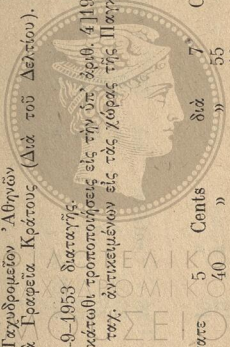 Ταχυδρομεῖον Ἀθηνῶν
Γραφεῖα Κράτους (Διὰ τοῦ Δελτίου).
-9-1953 διαταγῆς.
κάτωθι τροποποιήσεις εἰς τὴν ὑπ' ἀριθ. 4]19
ταχ. ἀντικειμένων εἰς τὰς χώρας τῆς Παγ
ατε 5 Cents διὰ 7
40 » » 55